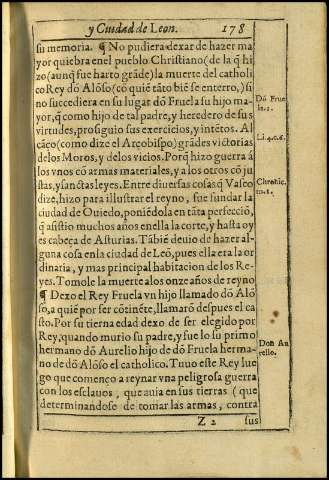 y Ciudad de Leon. 178
su memoria. ¶ No pudiera dexar de hazer ma
yor quiebra en el pueblo Christiano (de la q̃ hi
zo (aunq̃ fue harto grãde) la muerte del catholi
co Rey dõ Alõso (cõ quiẽ tãto biẽ se enterro,) si
no succediera en su lugar dõ Fruela su hijo ma-
yor, q̃ como hijo de tal padre, y heredero de sus
virtudes, prosiguio sus exercicios, y intẽtos. Al
cãço (como dize el Arçobispo) grãdes victorias
de los Moros, y de los vicios. Porq̃ hizo guerra á
los vnos cõ armas materiales, y a los otros cõ ju
stas, y sanctas leyes. Entre diuersas cosas q̃ Vaseo
dize, hizo para illustrar el reyno, fue fundar la
ciudad de Ouiedo, poniẽdola en tãta perfecciõ,
q̃ asistio muchos años en ella la corte, y hasta oy
es cabeça de Asturias. Tãbiẽ deuio de hazer al-
guna cosa en la ciudad de Leõ, pues ella era la or
dinaria, y mas principal habitacion de los Re-
yes. Tomole la muerte a los onze años de reyno
¶ Dexo el Rey Fruela vn hijo llamado dõ Alõ
so, a quiẽ por ser cõtinẽte, llamarõ despues el ca
sto. Por su tierna edad dexo de ser elegido por
Rey, quando murio su padre, y fue lo su primo
hermano dõ Aurelio hijo de dõ Fruela herma-
no de dõ Alõso el catholico. Tuuo este Rey lue
go que començo a reynar vna peligrosa guerra
con los esclauos, que auia en sus tierras (que
determinandose de tomar las armas, contra
Z 2 sus
Dõ Frue
la. 1.
Li. 4. c. 6.
Chronic.
Don Au
relio.